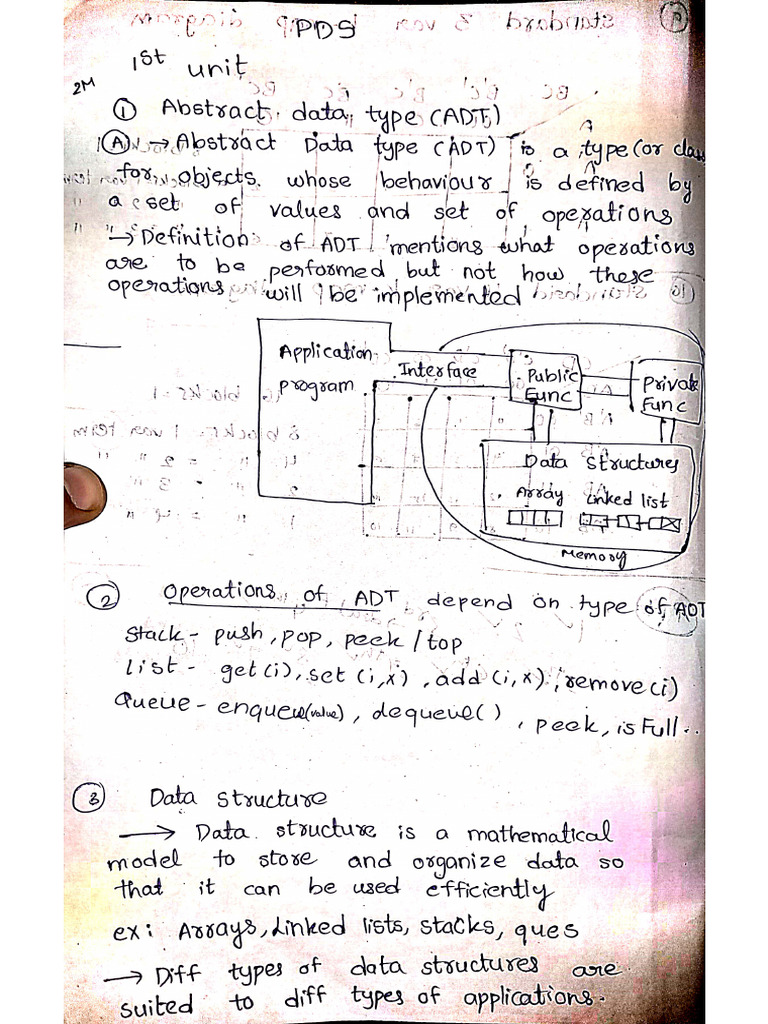 PDS
1st unit
2M
① Abstract data type (ADT)
Ⓐ → Abstract Data type (ADT) is a type (or class
for objects whose behaviour is defined by
a set of values and set of operations
→ Definition of ADT mentions what operations
are to be performed but not how these
operations will be implemented
Application program
Interface
Public Func
Private Func
Data Structures
Array Linked list
Memory
② Operations of ADT depend on type of ADT
Stack - push, pop, peek / top
List - get(i), set (i,x), add (i,x), remove(i)
Queue - enqueue(value), dequeue(), peek, isFull..
③ Data Structure
→ Data structure is a mathematical
model to store and organize data so
that it can be used efficiently
ex: Arrays, Linked lists, stacks, ques
→ Diff types of data structures are
suited to diff types of applications.